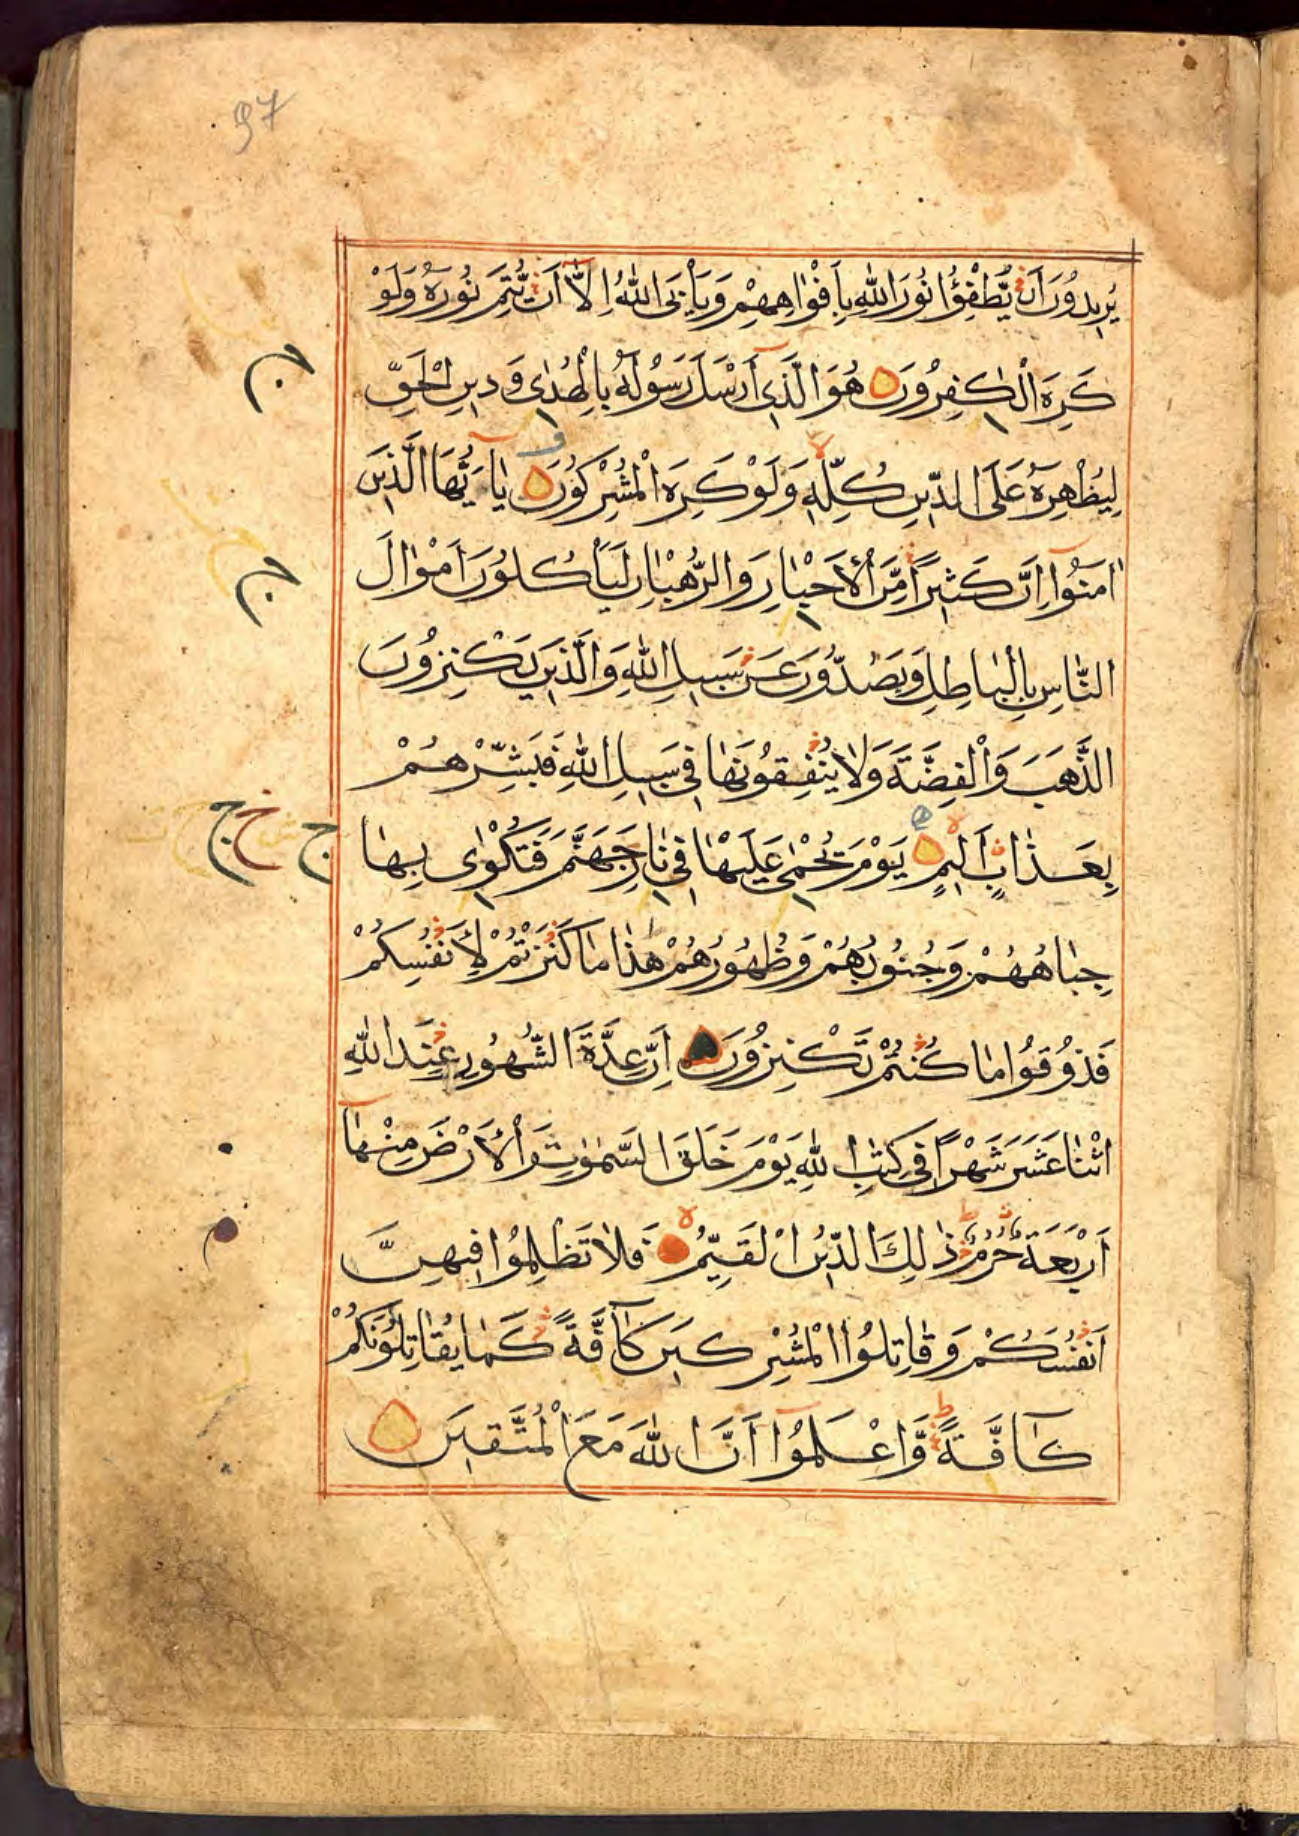 97
يُرِيدُونَ اَنْ يُّطْفِؤُا نُورَ اللّٰهِ بِاَفْوٰاهِهِمْ وَيَأْبَى اللّٰهُ اِلَّآ اَنْ يُّتِمَّ نُورَهُ وَلَوْ
كَرِهَ الْكٰفِرُونَ هُوَ الَّذِىٓ اَرْسَلَ رَسُولَهُ بِالْهُدٰى وَدِينِ الْحَقِّ
لِيُظْهِرَهُ عَلَى الدِّينِ كُلِّهِ وَلَوْ كَرِهَ الْمُشْرِكُونَ يٰٓاَيُّهَا الَّذِينَ
اٰمَنُوٓا اِنَّ كَثِيرًا مِّنَ الْاَحْبٰارِ وَالرُّهْبٰانِ لَيَأْكُلُونَ اَمْوٰالَ
النَّاسِ بِالْبٰاطِلِ وَيَصُدُّونَ عَنْ سَبِيلِ اللّٰهِ وَالَّذِينَ يَكْنِزُونَ
الذَّهَبَ وَالْفِضَّةَ وَلَا يُنْفِقُونَهٰا فِى سَبِيلِ اللّٰهِ فَبَشِّرْهُمْ
بِعَذٰابٍ اَلِيمٍ يَوْمَ يُحْمٰى عَلَيْهٰا فِى نٰارِ جَهَنَّمَ فَتُكْوٰى بِهٰا
جِبٰاهُهُمْ وَجُنُوبُهُمْ وَظُهُورُهُمْ هٰذٰا مٰا كَنَزْتُمْ لِاَنْفُسِكُمْ
فَذُوقُوا مٰا كُنْتُمْ تَكْنِزُونَ اِنَّ عِدَّةَ الشُّهُورِ عِنْدَ اللّٰهِ
اثْنٰا عَشَرَ شَهْرًا فِى كِتٰبِ اللّٰهِ يَوْمَ خَلَقَ السَّمٰوٰتِ وَالْاَرْضَ مِنْهٰآ
اَرْبَعَةٌ حُرُمٌ ذٰلِكَ الدِّينُ الْقَيِّمُ فَلَا تَظْلِمُوا فِيهِنَّ
اَنْفُسَكُمْ وَقٰاتِلُوا الْمُشْرِكِينَ كَآفَّةً كَمٰا يُقٰاتِلُونَكُمْ
كَآفَّةً وَّاعْلَمُوٓا اَنَّ اللّٰهَ مَعَ الْمُتَّقِينَ